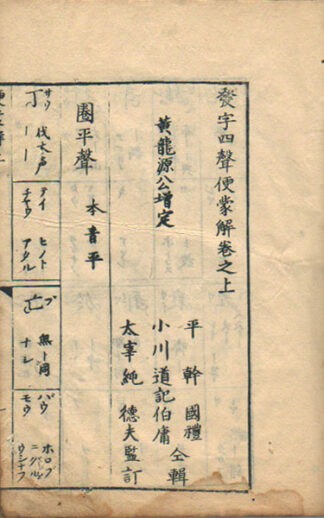 發字四聲便蒙解卷之上
平幹國禮
小川道記伯庸仝輯
太宰純德夫監訂
黃龍源公增定
圈平聲 本音平
丁
サウ
伐木声
テイ
チヤウ
ヒノト
アタル
亡
ブ
無ト同
ナレ
バウ
モウ
ホロブ
ウシナフ